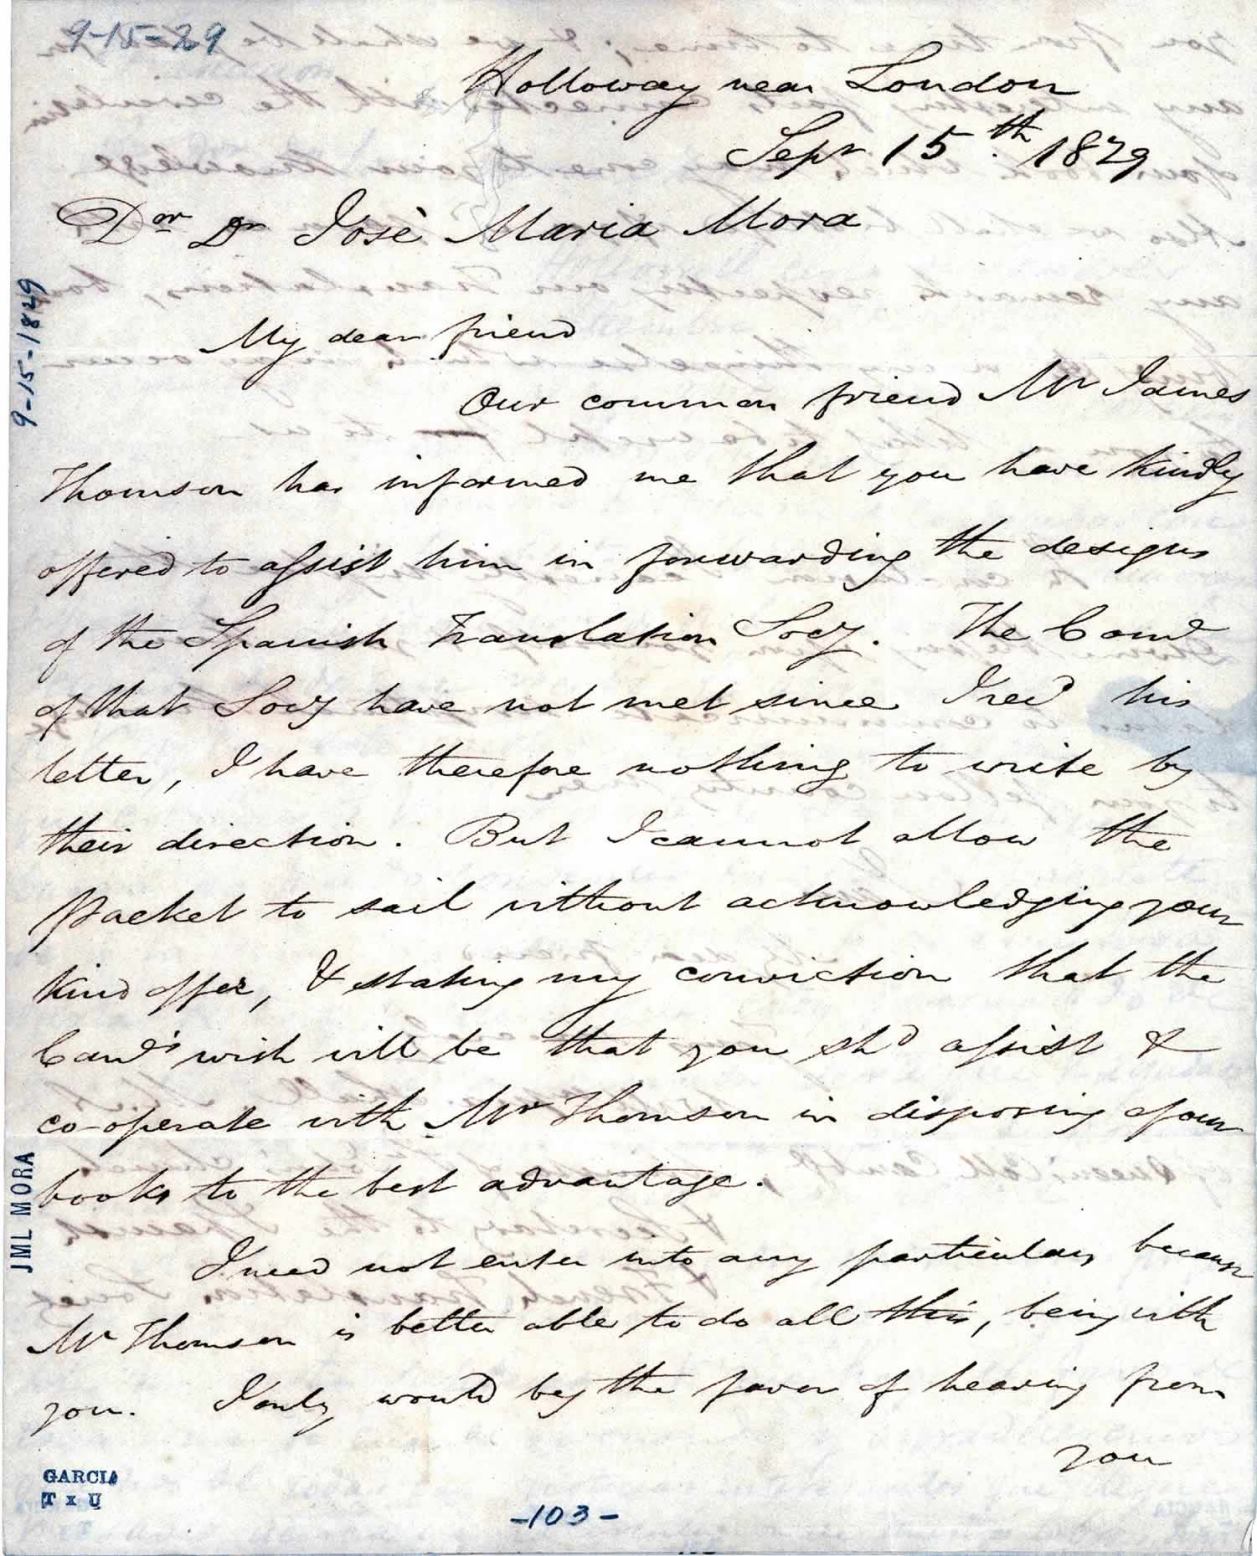 9-15-29
Holloway near London
Sept 15.th 1829
Dor Dr Josè Maria Mora
9-15-1829
My dear friend
Our common friend Mr James
Thomson has informed me that you have kindly
offered to assist him in forwarding the designs
of the Spanish Translation Socy. The Comee
of that Socy have not met since I recd his
letter, I have therefore nothing to write by
their direction. But I cannot allow the
packet to sail without acknowledging your
kind offer, & stating my conviction that the
Comee's wish will be that you shd assist &
co-operate with Mr Thomson in disposing of our
books to the best advantage.
JML MORA
I need not enter into any particulars because
Mr Thomson is better able to do all this, being with
you. I only would beg the favor of hearing from
you
GARCIA
T x U
-103-